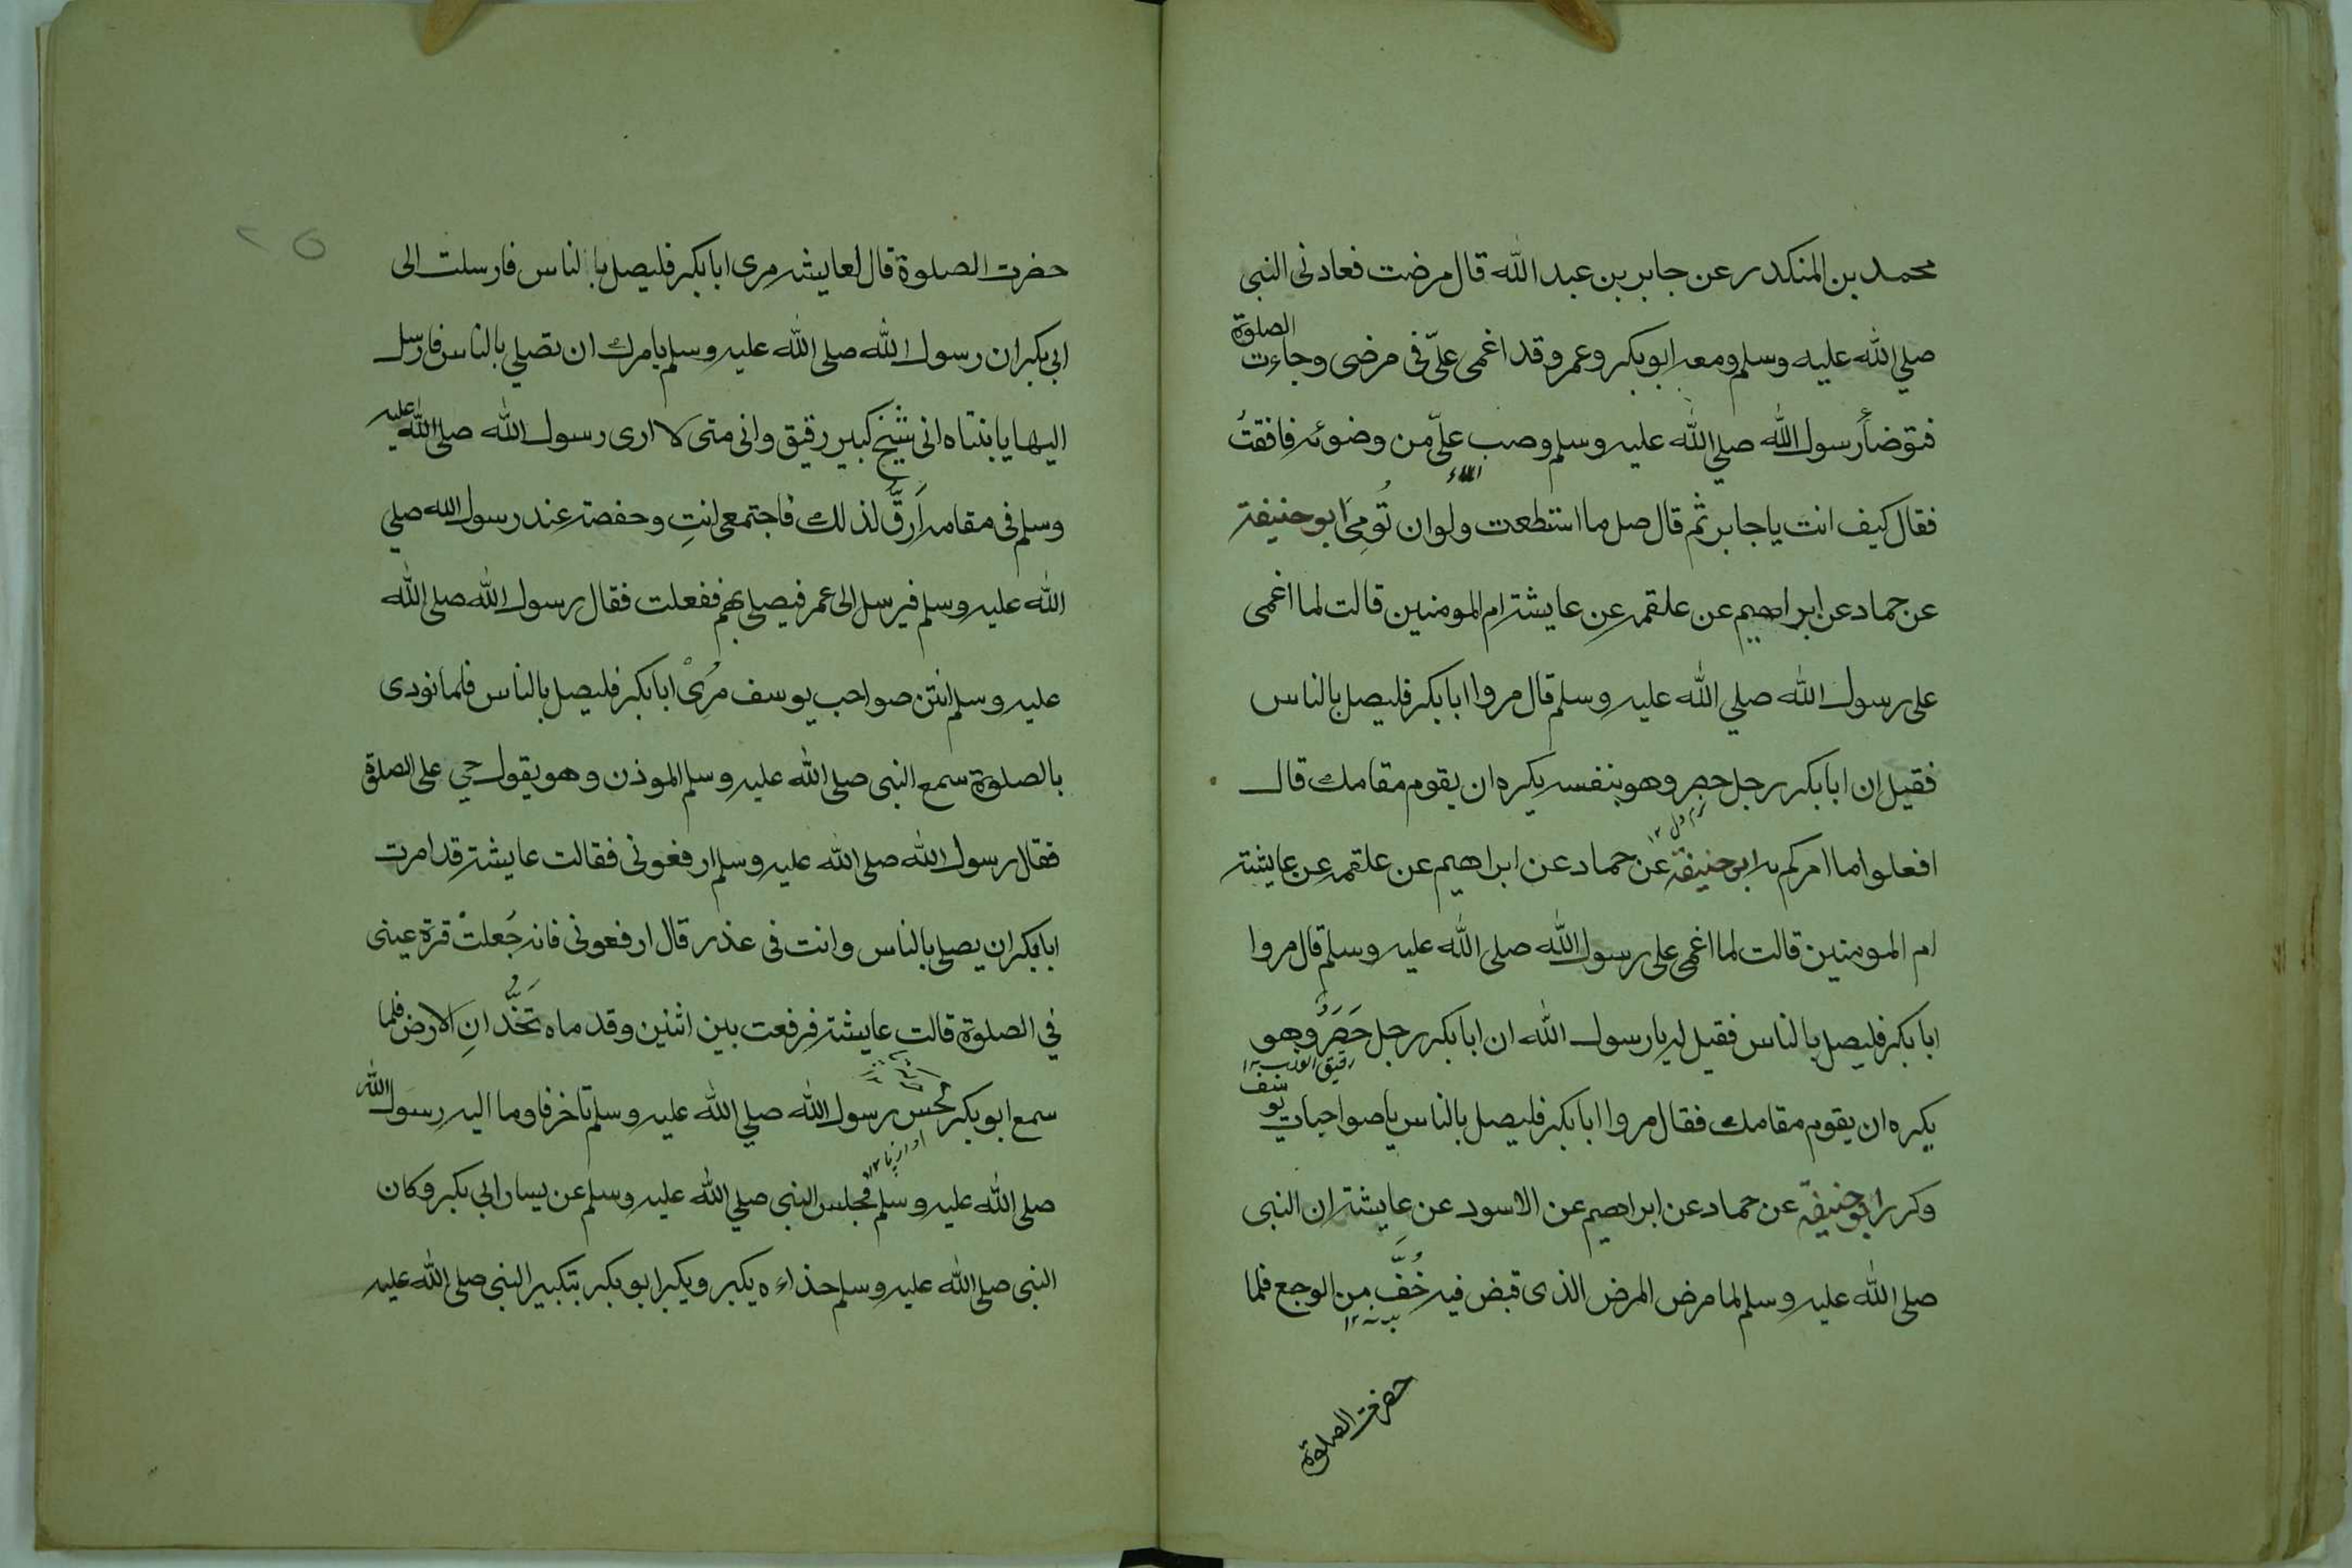 محمد بن المنكدر عن جابر بن عبد الله قال مرضت فعادنى النبى
صلي الله عليه وسلم ومعه ابو بكر وعمر وقد اغمى علىّ فى مرضى وجاءت الصلوة
فتوضأ رسول الله صلي الله عليه وسلم وصب علىّ من وضوئه فافقتُ
فقال كيف انت يا جابر ثم قال صل ما استطعت ولو ان تُومِىَ ابو حنيفة
عن حماد عن ابراهيم عن علقمه عن عايشة ام المومنين قالت لما اغمى
على رسول الله صلي الله عليه وسلم قال مروا ابا بكر فليصل بالناس
فقيل ان ابا بكر رجل حصر وهو بنفسه يكره ان يقوم مقامك قال
نرم دل ١٢
افعلوا ما امركم به ابو حنيفة عن حماد عن ابراهيم عن علقمه عن عايشة
ام المومنين قالت لما اغمى على رسول الله صلى الله عليه وسلم قال مروا
ابا بكر فليصل بالناس فقيل له يا رسول الله ان ابا بكر رجل حَصَرٌ وهو
رقيق القلب ١٢
يكره ان يقوم مقامك فقال مروا ابا بكر فليصل بالناس يا صواحبات يوسف
وكرر ابو حنيفة عن حماد عن ابراهيم عن الاسود عن عايشة ان النبى
صلى الله عليه وسلم لما مرض المرض الذى قبض فيه خُفَّ من الوجع فلما
حضرت الصلوة
٢٥
حضرت الصلوة قال لعايشه مرى ابا بكر فليصل بالناس فارسلت الى
ابى بكر ان رسول الله صلى الله عليه وسلم يامرك ان تصلي بالناس فارسل
اليها يا بنتاه انى شيخ كبير رقيق وانى متى لا ارى رسول الله صلى الله عليه
وسلم فى مقامه اَرقُّ لذلك فاجتمعى انتِ وحفصة عند رسول الله صلي
الله عليه وسلم فيرسل الى عمر فيصلى بهم ففعلت فقال رسول الله صلى الله
عليه وسلم انتن صواحب يوسف مُرِىْ ابا بكر فليصل بالناس فلما نودى
بالصلوة سمع النبى صلى الله عليه وسلم الموذن وهو يقول حي على الصلوة
فقال رسول الله صلى الله عليه وسلم ارفعونى فقالت عايشة قد امرت
ابا بكر ان يصلى بالناس وانت فى عذر قال ارفعونى فانه جُعلتْ قرة عينى
في الصلوة قالت عايشة فرفعت بين اثنين وقدماه تَخُدّانِ الارض فلما
سمع ابو بكر بحس رسول الله صلي الله عليه وسلم تاخر فاوما اليه رسول الله
اواز پا ١٢
صلى الله عليه وسلم فجلس النبى صلي الله عليه وسلم عن يسار ابي بكر وكان
النبى صلى الله عليه وسلم حذاءه يكبر ويكبر ابو بكر بتكبير النبى صلى الله عليه